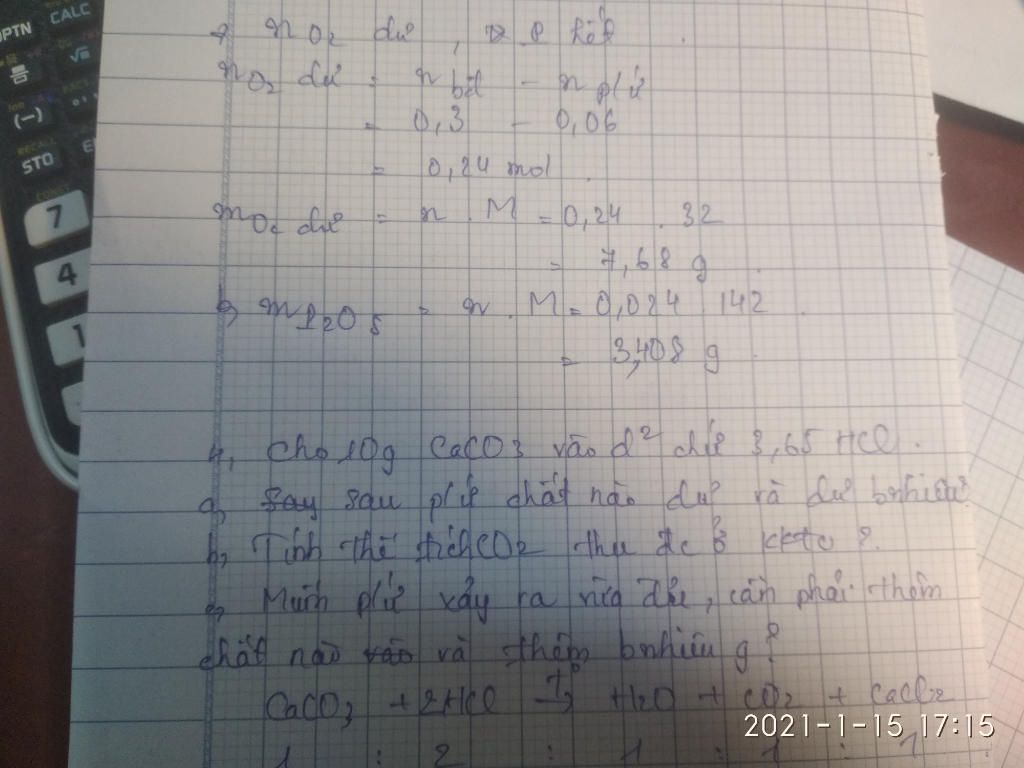 OPTN CALC
(-)
RECALL
STO
CONST
7
4
1
→ nO2 dư , P hết .
nO2 dư = nbđ - n pứ
= 0,3 - 0,06
= 0,24 mol .
mO2 dư = n . M = 0,24 . 32
= 7,68 g .
mP2O5 = n . M = 0,024 . 142 .
= 3,408 g .
4, Cho 10g CaCO3 vào d² chứa 3,65 HCl .
a, sau pứ chất nào dư và dư bnhiêu?
b, Tính thể tích CO2 thu đc ở đktc ?.
c, Muốn pứ xảy ra vừa đủ, cần phải thêm
chất nào và thêm bnhiêu g?
CaCO3 + 2HCl → H2O + CO2 + CaCl2
1 : 2 : 1 : 1 : 1
2021-1-15 17:15